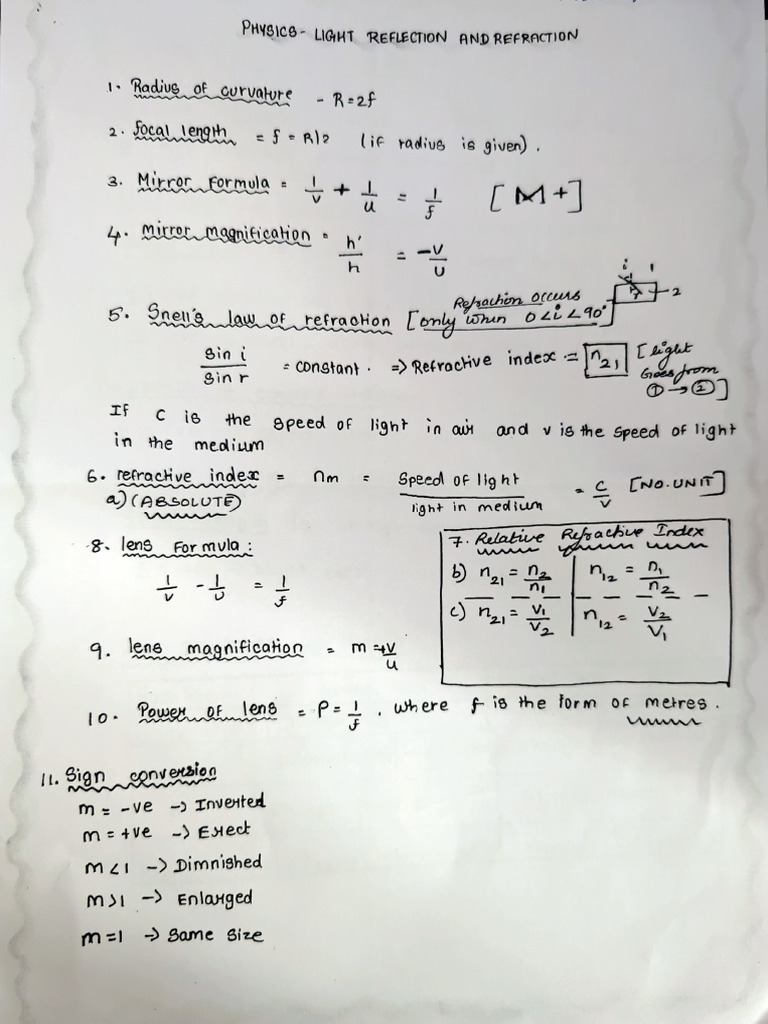 PHYSICS - LIGHT REFLECTION AND REFRACTION
1. Radius of curvature - R=2f
2. focal length = f = R/2 (if radius is given).
3. Mirror Formula = 1/v + 1/u = 1/f [M+]
4. Mirror magnification = h'/h = -v/u
5. Snell's law of refraction [only when 0<i<90°]
Refraction occurs
i 1
r
2
sin i / sin r = constant. => Refractive index = n21 [light Goes from ① → ②]
If c is the speed of light in air and v is the speed of light
in the medium
6. refractive index = nm = Speed of light / light in medium = c/v [NO.UNIT]
a) (ABSOLUTE)
7. Relative Refractive Index
b) n21 = n2/n1 | n12 = n1/n2
c) n21 = v1/v2 | n12 = v2/v1
8. lens Formula:
1/v - 1/u = 1/f
9. lens magnification = m = +v/u
10. Power of lens = P = 1/f , where f is the form of metres.
11. Sign conversion
m = -ve -> Inverted
m = +ve -> Erect
m<1 -> Dimnished
m>1 -> Enlarged
m=1 -> Same size